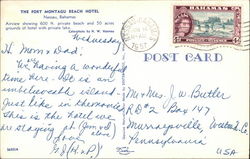 THE FORT MONTAGU BEACH HOTEL
Nassau, Bahamas
Airview showing 600 ft. private beach and 50 acres
grounds of hotel with private lake.
Wednesday
Hi Mom & Dad:
We're having a wonderful
time here. It is an
unbelievable island
Just like in the movies
this is the hotel we
are staying at.
BAHAMAS
POST CARD
Mr & Mrs. J. W. Butler
RD #2 Box 147
Murrysville,
Pennsylvania
USA